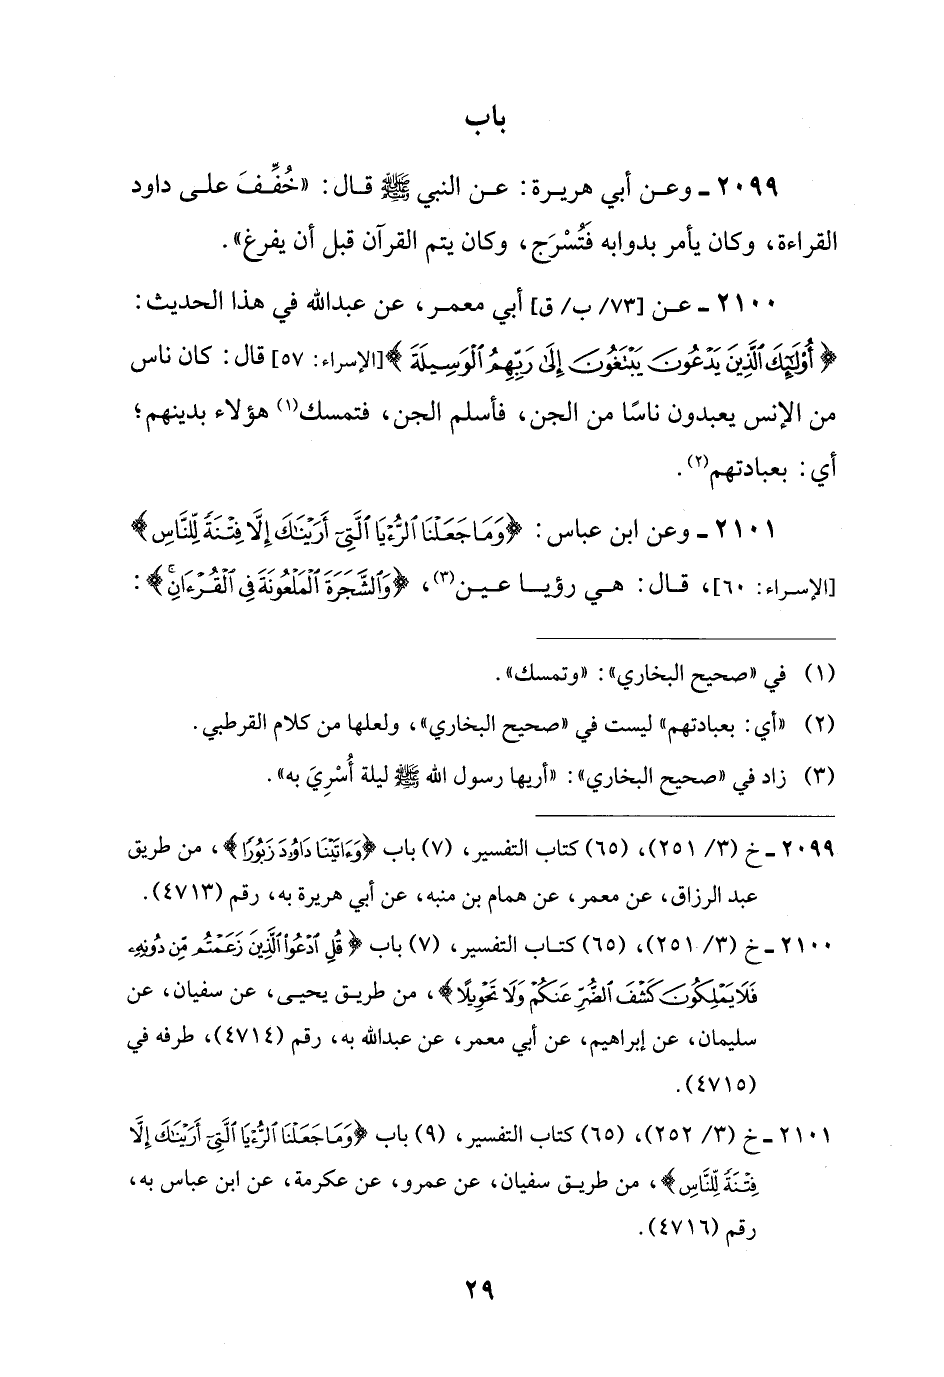 باب
٢٠٩٩ ـ وعن أبي هريرة: عن النبي ﷺ قال: «خُفِّفَ على داود
القراءة، وكان يأمر بدوابه فَتُسْرَج، وكان يتم القرآن قبل أن يفرغ».
٢١٠٠ ـ عن [٧٣/ ب/ ق] أبي معمر، عن عبدالله في هذا الحديث:
﴿أُوْلَٰٓئِكَ ٱلَّذِينَ يَدْعُونَ يَبْتَغُونَ إِلَىٰ رَبِّهِمُ ٱلْوَسِيلَةَ﴾ [الإسراء: ٥٧] قال: كان ناس
من الإنس يعبدون ناسًا من الجن، فأسلم الجن، فتمسك(١) هؤلاء بدينهم؛
أي: بعبادتهم(٢).
٢١٠١ ـ وعن ابن عباس: ﴿وَمَا جَعَلْنَا ٱلرُّءْيَا ٱلَّتِيٓ أَرَيْنَٰكَ إِلَّا فِتْنَةً لِّلنَّاسِ﴾
[الإسراء: ٦٠]، قال: هي رؤيا عين(٣)، ﴿وَٱلشَّجَرَةَ ٱلْمَلْعُونَةَ فِي ٱلْقُرْءَانِ﴾:
(١) في «صحيح البخاري»: «وتمسك».
(٢) «أي: بعبادتهم» ليست في «صحيح البخاري»، ولعلها من كلام القرطبي.
(٣) زاد في «صحيح البخاري»: «أريها رسول الله ﷺ ليلة أُسْرِيَ به».
٢٠٩٩ ـ خ (٣/ ٢٥١)، (٦٥) كتاب التفسير، (٧) باب ﴿وَءَاتَيْنَا دَاوُۥدَ زَبُورًا﴾، من طريق
عبد الرزاق، عن معمر، عن همام بن منبه، عن أبي هريرة به، رقم (٤٧١٣).
٢١٠٠ ـ خ (٣/ ٢٥١)، (٦٥) كتاب التفسير، (٧) باب ﴿قُلِ ٱدْعُواْ ٱلَّذِينَ زَعَمْتُم مِّن دُونِهِۦ
فَلَا يَمْلِكُونَ كَشْفَ ٱلضُّرِّ عَنكُمْ وَلَا تَحْوِيلًا﴾، من طريق يحيى، عن سفيان، عن
سليمان، عن إبراهيم، عن أبي معمر، عن عبدالله به، رقم (٤٧١٤)، طرفه في
(٤٧١٥).
٢١٠١ ـ خ (٣/ ٢٥٢)، (٦٥) كتاب التفسير، (٩) باب ﴿وَمَا جَعَلْنَا ٱلرُّءْيَا ٱلَّتِيٓ أَرَيْنَٰكَ إِلَّا
فِتْنَةً لِّلنَّاسِ﴾، من طريق سفيان، عن عمرو، عن عكرمة، عن ابن عباس به،
رقم (٤٧١٦).
٢٩